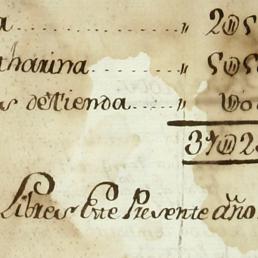 a........... „ 2@5
tharina........... „ 5@5
as de Tienda.... „
37@2
Libres Este Presente año.